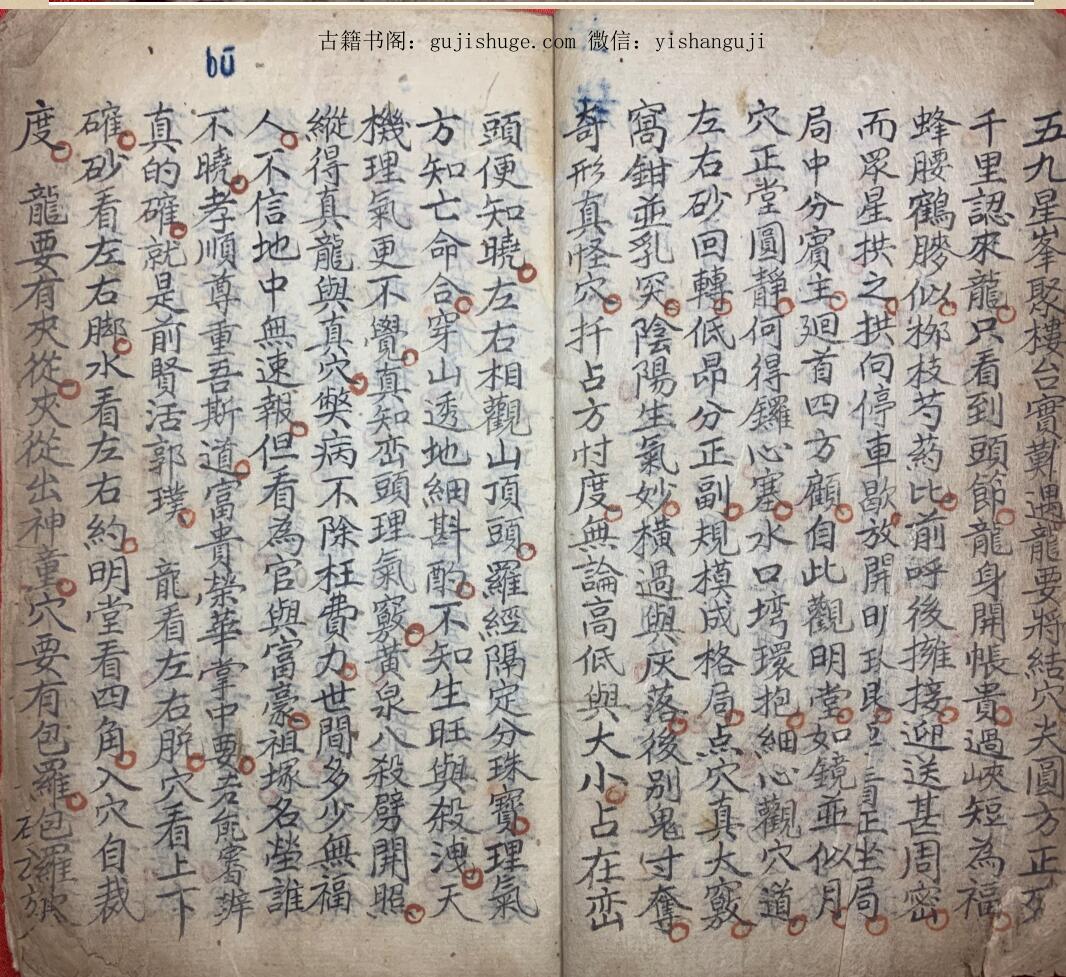 古籍书阁：gujishuge.com 微信：yishanguji
bū
五九星峯聚樓台實難遇龍要將結穴夫圓方正
千里認來龍只看到頭節龍身開帳貴過峽短為福
蜂腰鶴膝似梛枝芍药比前呼後擁接迎送甚周密
而眾星拱之拱向停車歇放開正坐局
局中分賓主廻首四方顧自此觀明堂如鏡並似月
穴正堂圓靜何得鑼心塞水口塆環抱細心觀穴道
左右砂回轉低昂分正副規模成格局点穴真大竅
窩鉗並乳突陰陽生氣妙橫過與灰落後别鬼寸奪
奇形真怪穴扦占方忖度無論高低與大小占在峦
頭便知曉左右相觀山頂頭羅經隔定分珠寶理氣
方知亡命合穿山透地細斟酌不知生旺與殺洩天
機理氣更不覺真知峦頭理氣竅黃泉八殺劈開照
縱得真龍與真穴獘病不除枉費力世間多少無福
人不信地中無速報但看為官與富豪祖塚名塋誰
不曉孝順尊重吾斯道富貴榮華掌中要若能實辦
真的確就是前賢活郭璞 龍看左右脫穴看上下
確砂看左右脚水看左右約明堂看四角入穴自裁
度 龍要有夾從夾從出神童穴要有包羅包羅